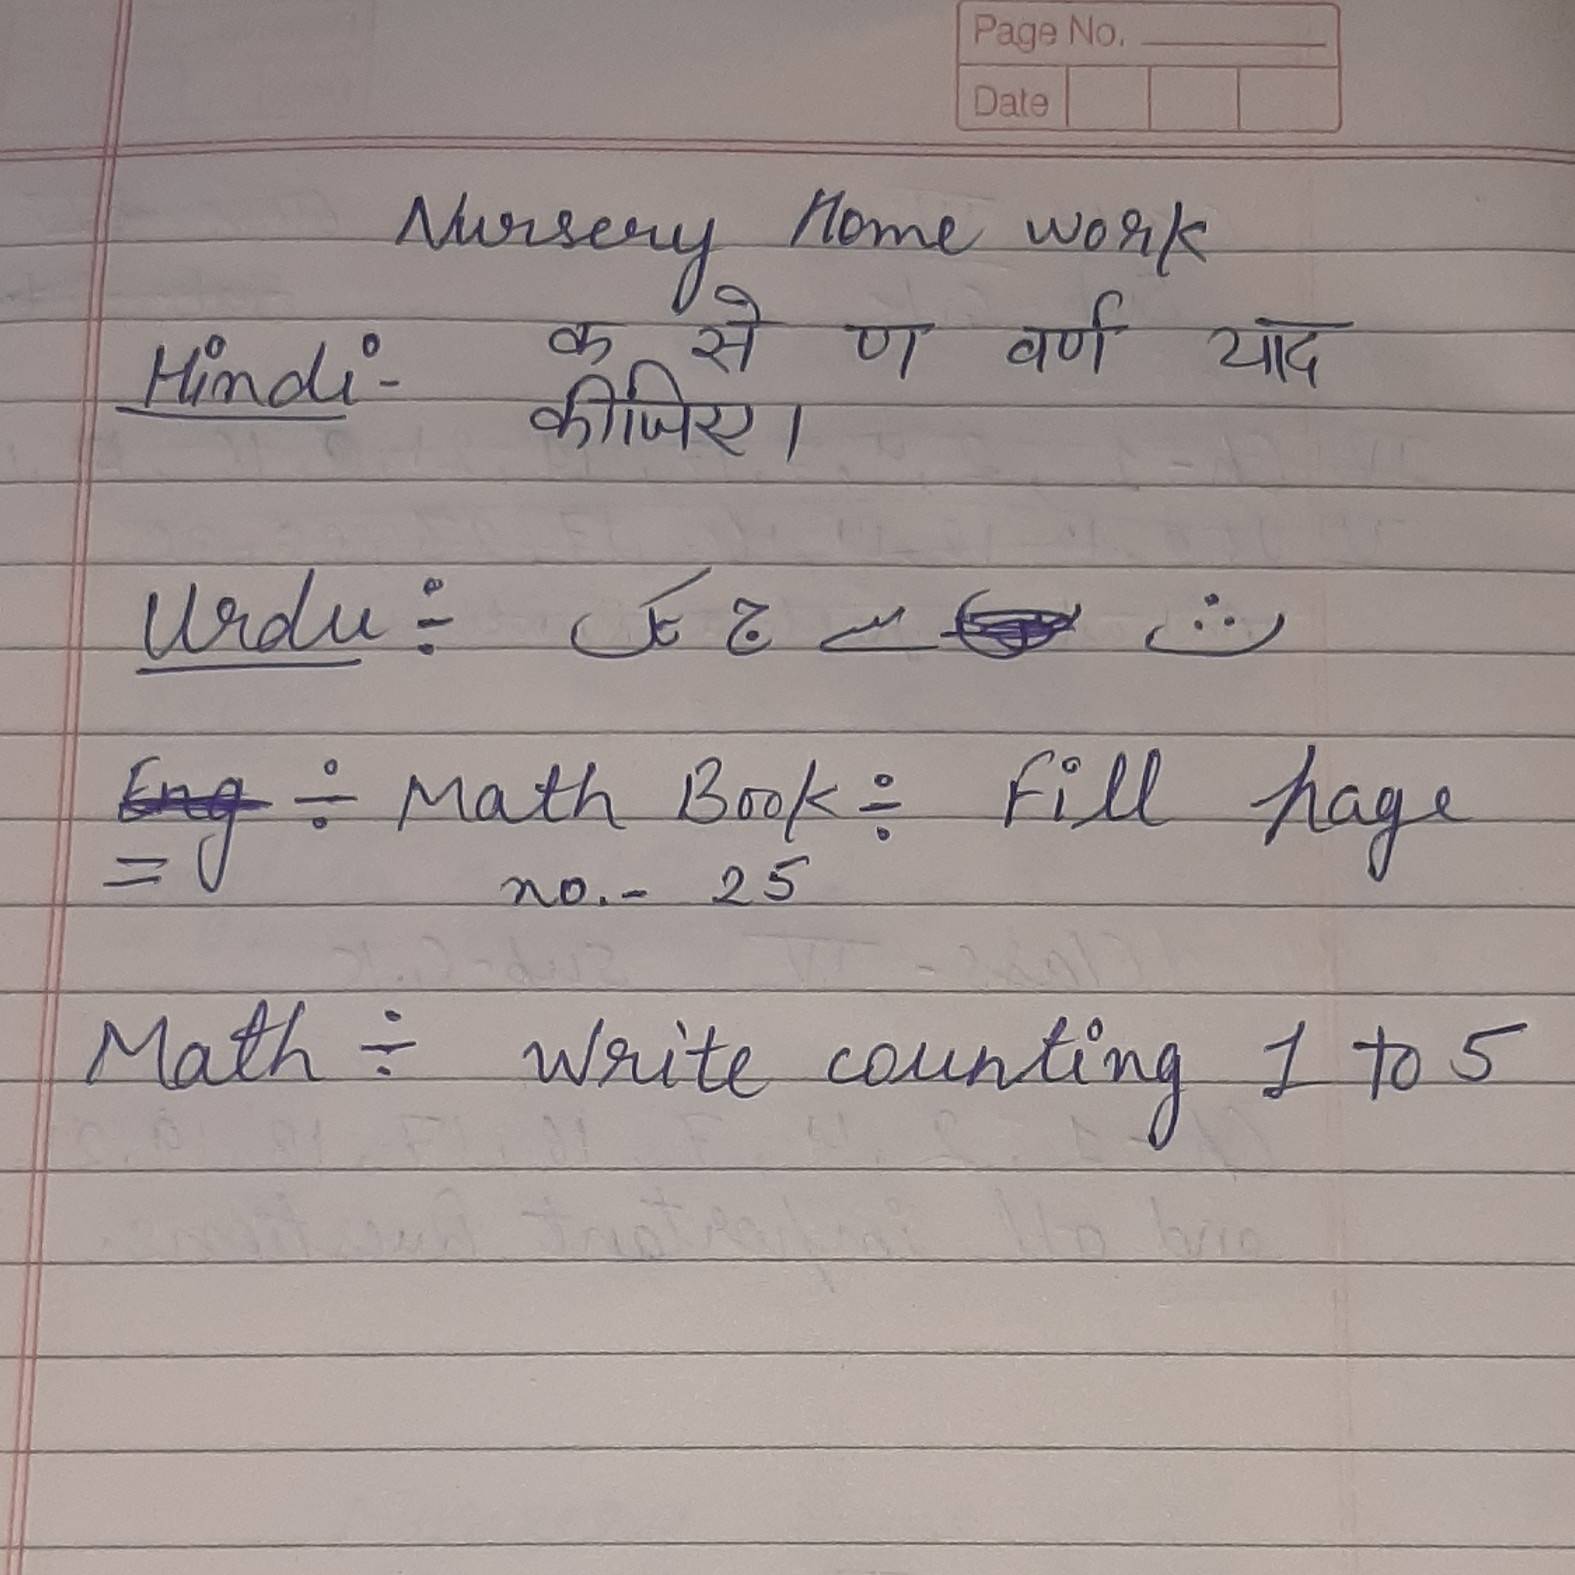 Page No.
Date
Nursery Home work
Hindi:- क से ण वर्ण याद
कीजिए।
Urdu ÷ ث سے ج تک
Eng ÷ Math Book ÷ Fill page
no.- 25
Math ÷ Write counting 1 to 5